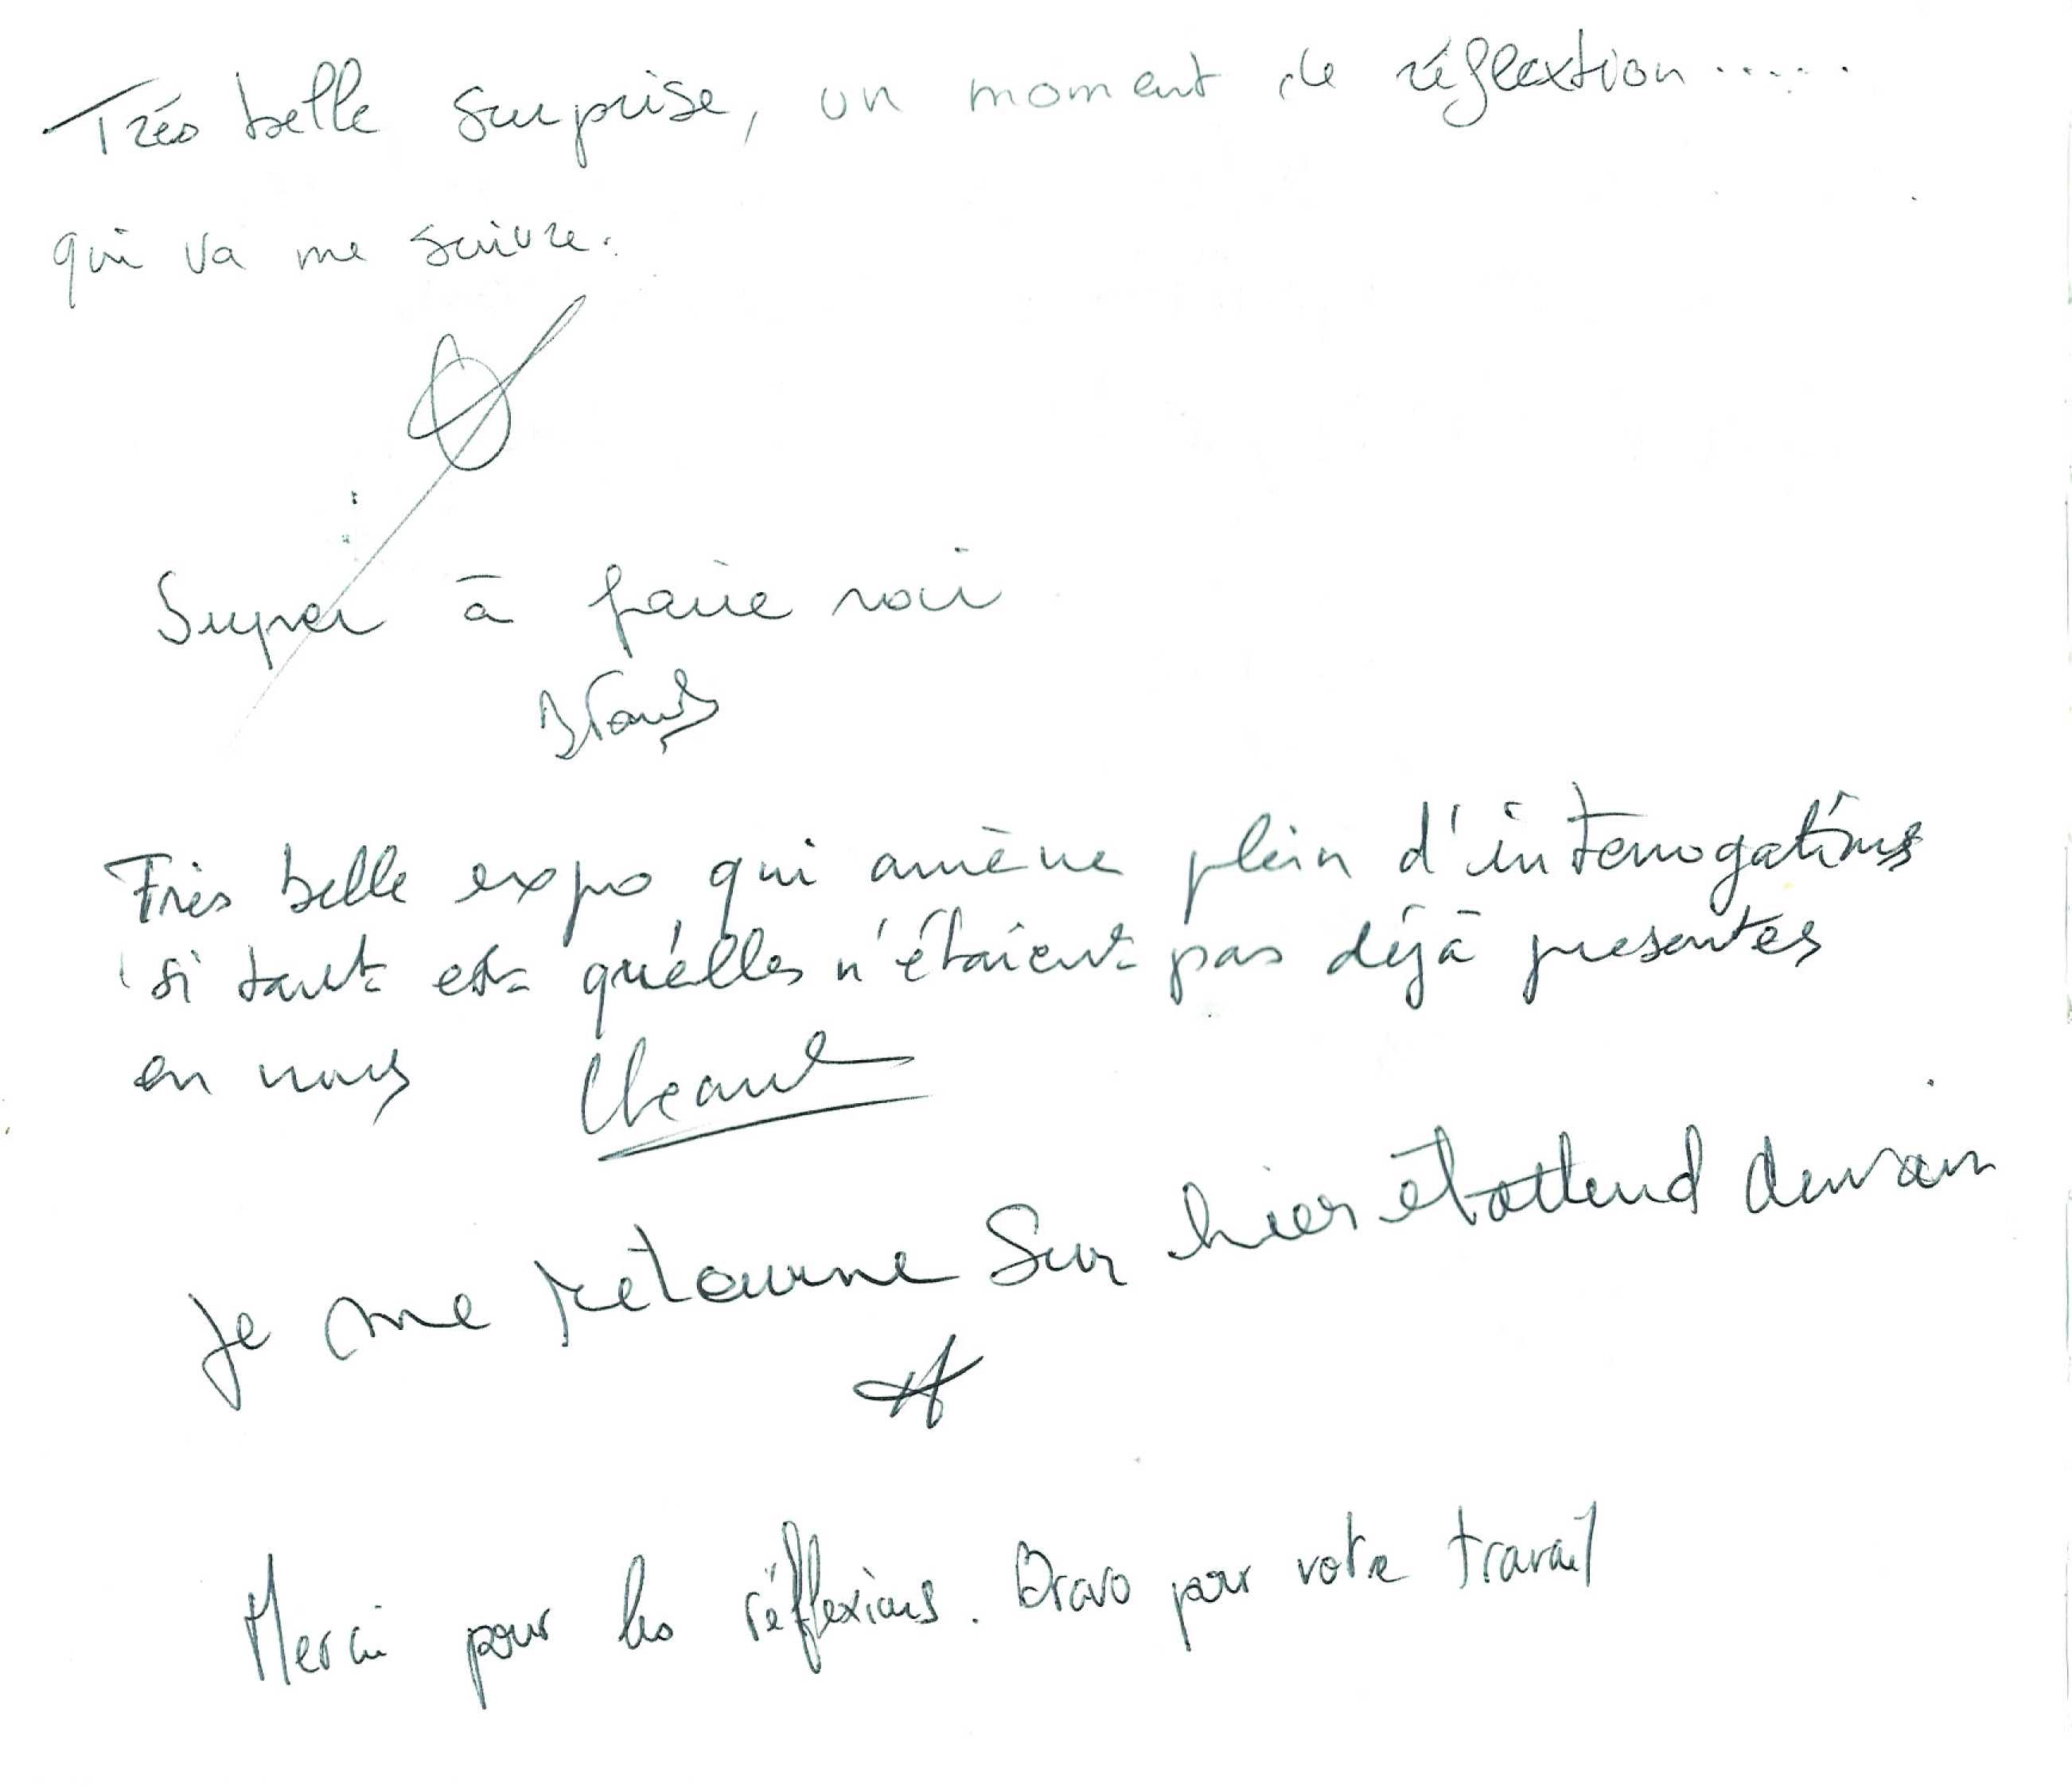 Trés belle surprise, un moment de réflextion.....
qui va me suivre.
Super à faire voir
Très belle expo qui amène plein d'interrogations
si tant est qu'elles n'étaient pas déjà presentes
en nous
Je me retourne sur hier et attend demain
Merci pour les réfflexions. Bravo pour votre travail